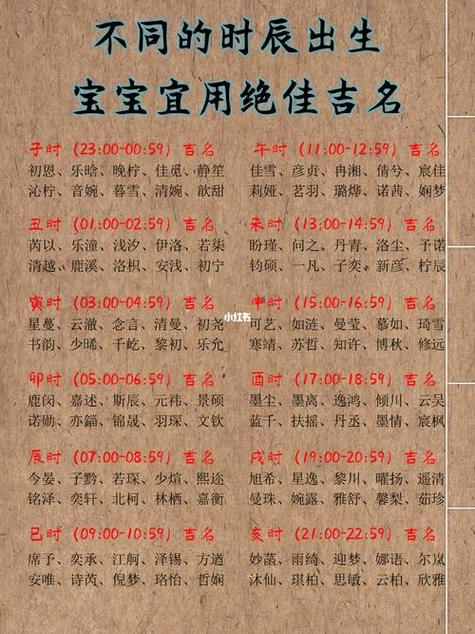 不同的时辰出生
宝宝宜用绝佳吉名
子时（23:00-00:59）吉名
初恩、乐晗、晚柠、佳觅、静笙
沁柠、音婉、暮雪、清婉、歆甜
丑时（01:00-02:59）吉名
芮以、乐潼、浅汐、伊洛、若柒
清越、鹿溪、洛枳、安浅、初宁
寅时（03:00-04:59）吉名
星蔓、云澈、念言、清曼、初尧
书韵、少晞、千屹、黎初、乐允
卯时（05:00-06:59）吉名
鹿闵、嘉述、斯辰、元祎、景硕
诺勋、亦錙、锦晟、羽琛、文钦
辰时（07:00-08:59）吉名
今晏、子黔、若琛、少煊、熙迩
铭泽、奕轩、北柯、林栖、嘉衡
巳时（09:00-10:59）吉名
席予、奕承、江舸、泽锡、方遒
安唯、诗芮、倪梦、珞怡、哲娴
午时（11:00-12:59）吉名
佳雪、彦贞、冉湘、倩兮、宸佳
莉娅、茗羽、璐烨、诺茜、娴梦
未时（13:00-14:59）吉名
盼瑾、问之、丹青、洛尘、予诺
钧硕、一凡、子奕、新彦、柠辰
申时（15:00-16:59）吉名
可艺、如涟、曼莹、慕如、琦雪
寒靖、苏哲、知许、博秋、修远
酉时（17:00-18:59）吉名
墨尘、墨离、逸鸿、倾川、云吴
蓝千、扶摇、丹丞、墨情、宸枫
戌时（19:00-20:59）吉名
旭希、星逸、黎川、曜扬、遥清
曼珠、婉露、雅舒、馨梨、茹珍
亥时（21:00-22:59）吉名
妙菡、雨绮、迎梦、娜语、尔岚
沐仙、琪柏、思敏、云柏、欣雅
小红书